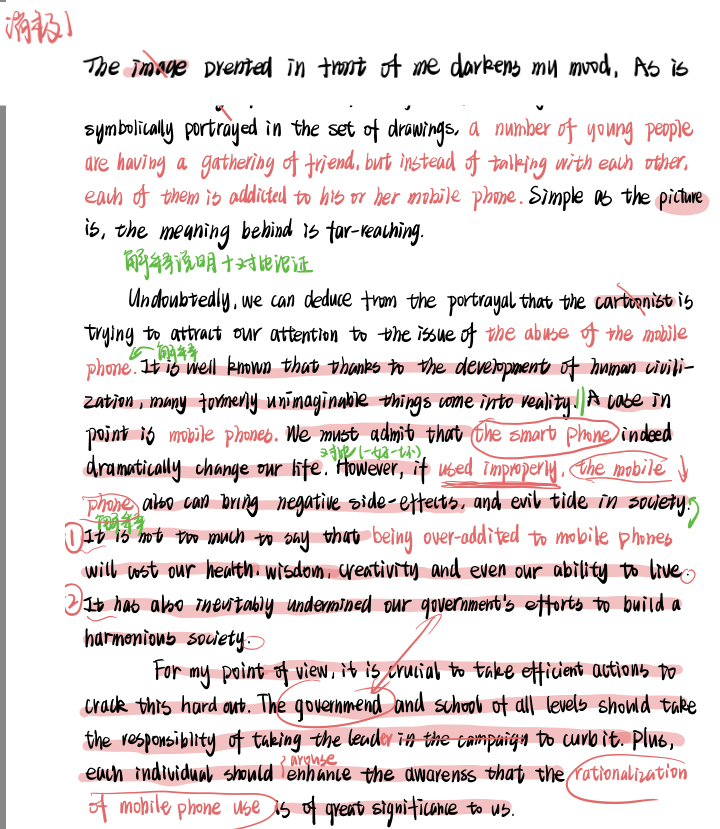 消极1
The image prented in front of me darkens my mood. As is
symbolically portrayed in the set of drawings, a number of young people
are having a gathering of friend, but instead of talking with each other,
each of them is addicted to his or her mobile phone. Simple as the picture
is, the meaning behind is far-reaching.
解释说明+对比论证
Undoubtedly, we can deduce from the portrayal that the cartoonist is
trying to attract our attention to the issue of the abuse of the mobile
解释
phone. It is well known that thanks to the development of human civili-
zation, many formerly unimaginable things come into reality. A case in
point is mobile phones. We must admit that the smart phone indeed
对比(一好一坏)
dramatically change our life. However, if used improperly, the mobile
phone also can bring negative side-effects, and evil tide in society.
解释
① It is not too much to say that being over-addited to mobile phones
will cost our health, wisdom, creativity and even our ability to live.
② It has also inevitably undermined our government's efforts to build a
harmonious society.
For my point of view, it is crucial to take efficient actions to
crack this hard out. The governmend and school of all levels should take
the responsiblity of taking the leader in the campaign to curb it. Plus,
arouse
each individual should enhance the awarenss that the rationalization
of mobile phone use is of great significance to us.